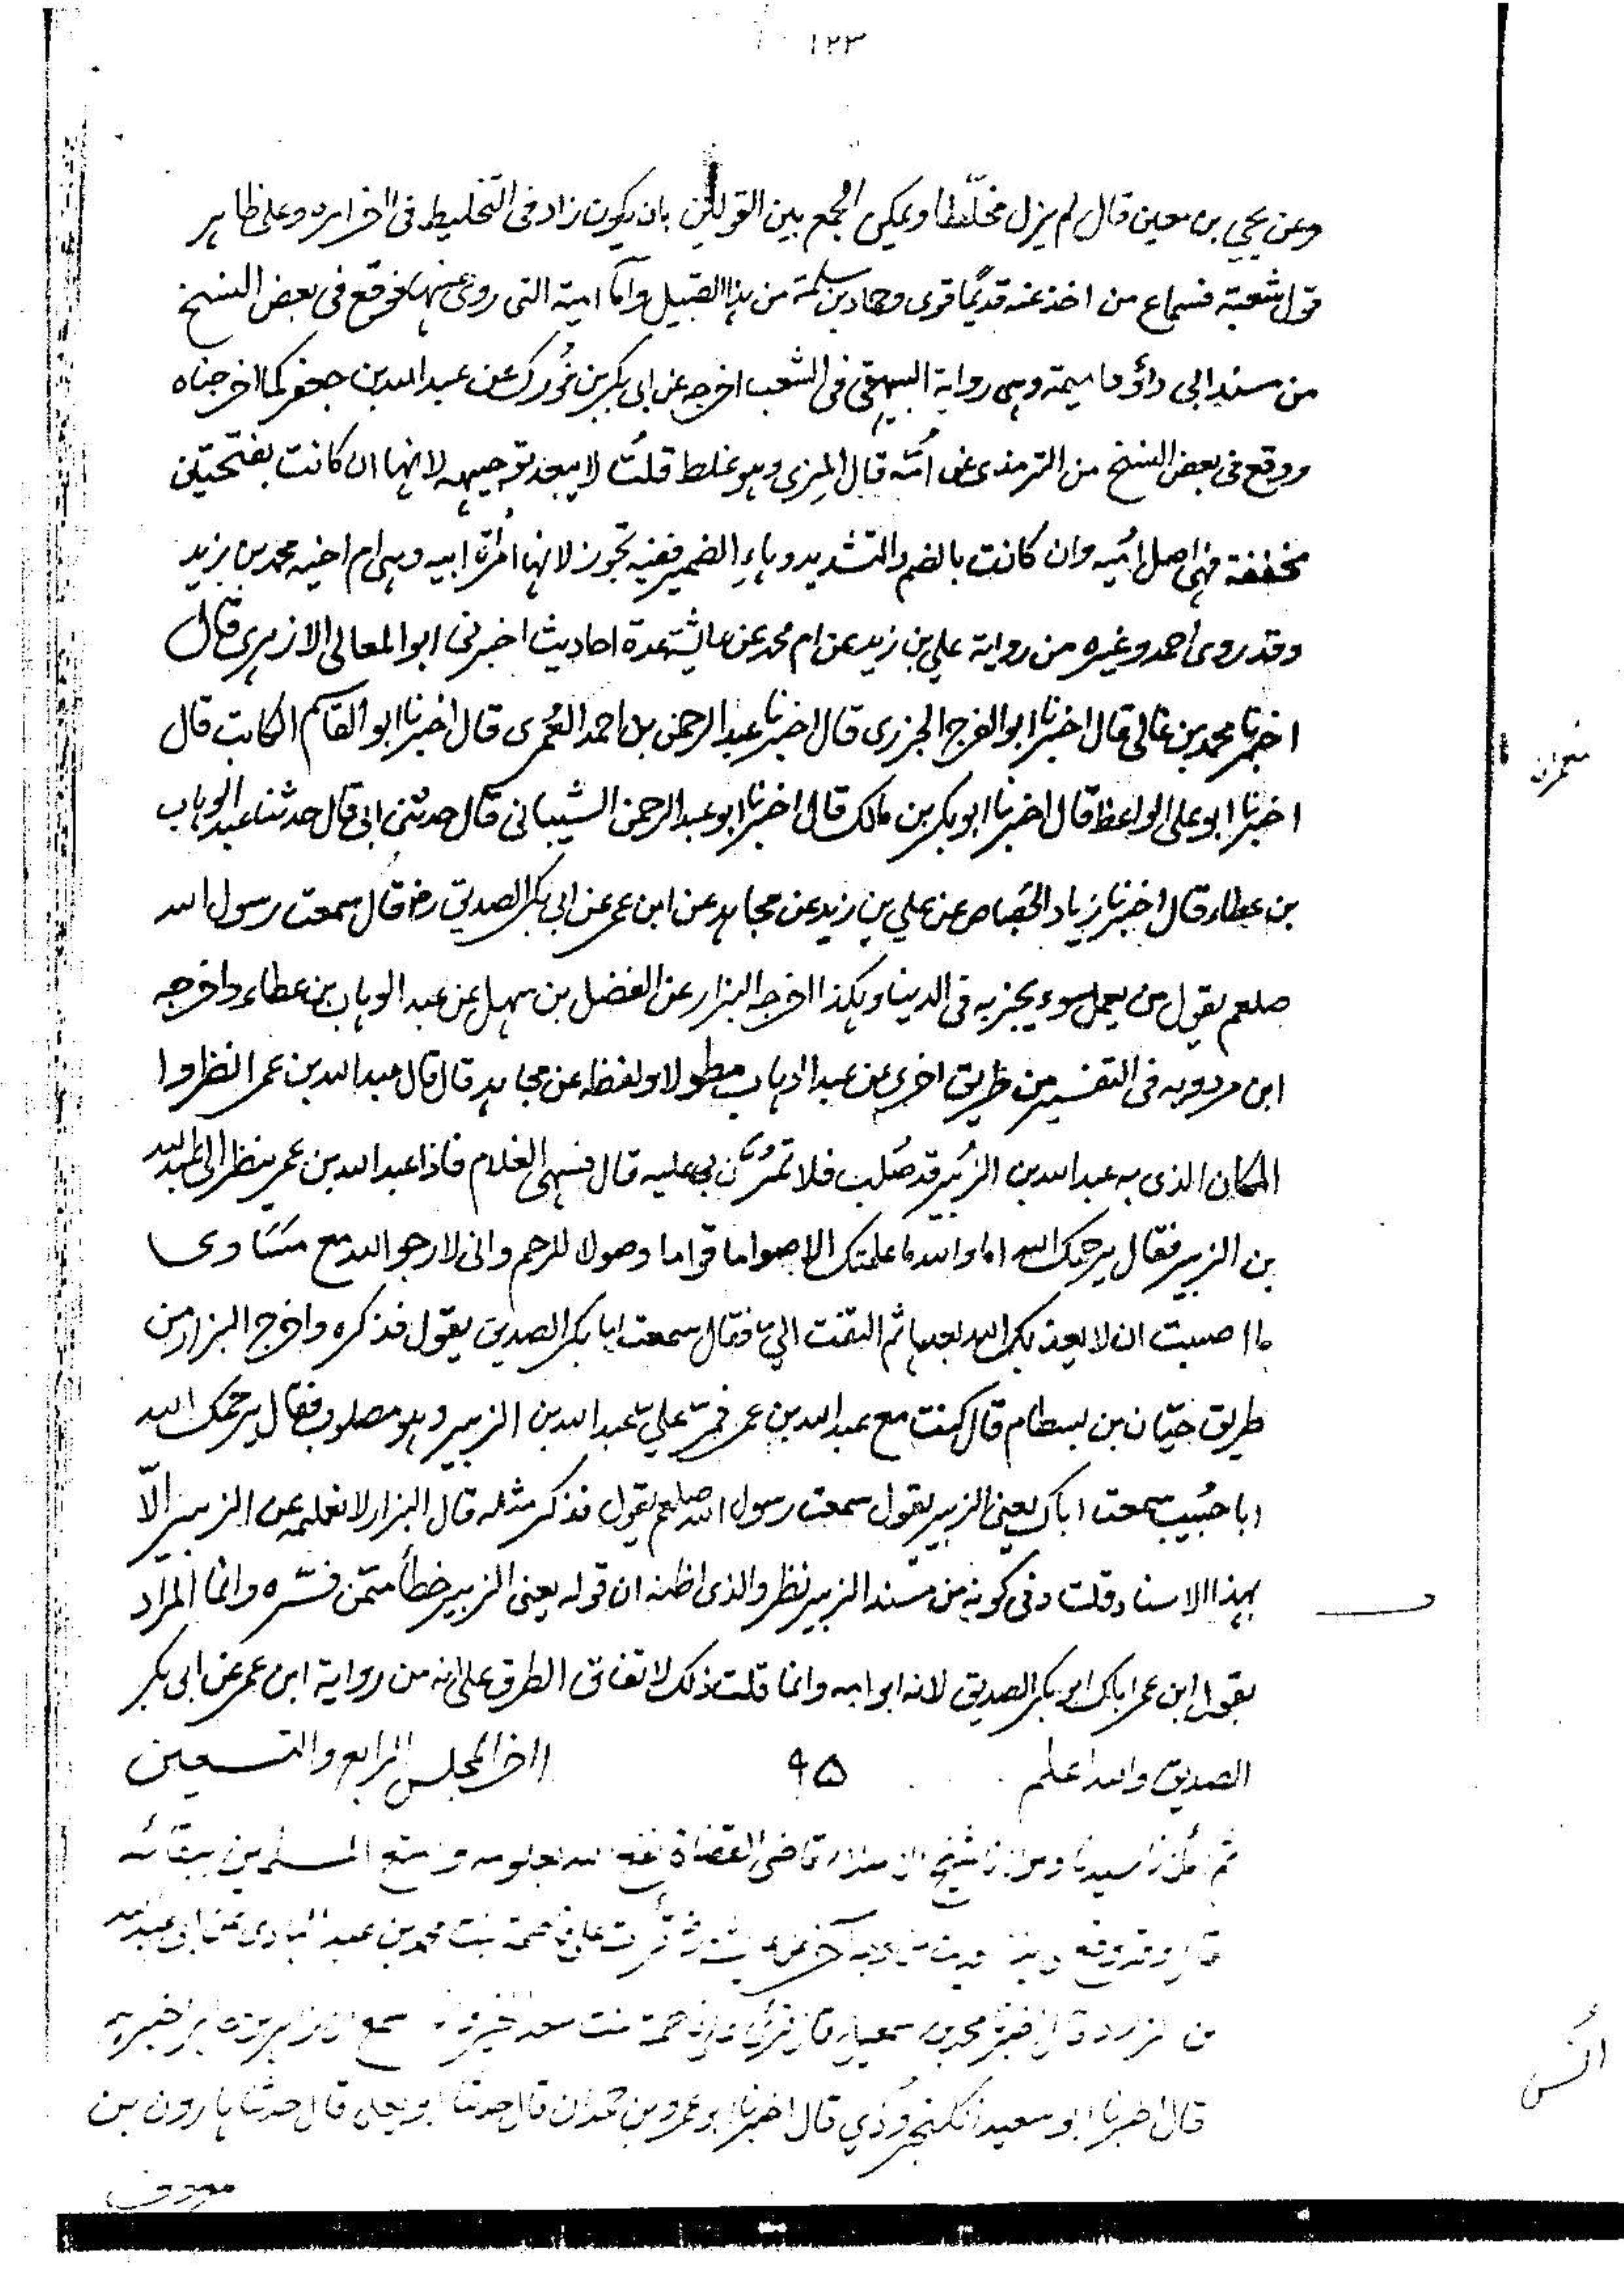 ١٢٣
وعن يحيي بن معين قال لم يزل مخلّطا ويمكن الجمع بين القولين بان يكون زاد في التخليط في اخرامره وعلى ظاهر
قول شعبة فسماع من اخذ عنه قديمًا قوى وحماد بن سلمة من هذا القبيل واما امية التى روى عنها فوقع فى بعض النسخ
من سند ابى داؤد اميمة وهى رواية البيهقى فى الشعب اخرجه عن ابى بكر بن فُورك عن عبد الله بن جعفر كما اخرجناه
ووقع فى بعض النسخ من الترمذى عن اُمّه قال المِزى وهو غلط قلتُ لا يبعد توجيهه لانها ان كانت بفتحتين
مخففة فهى اصل اَمَيه وان كانت بالضم والتشديد وهاءِ الضمير ففيه تجوز لانها امراة ابيه وهى ام اخيه محمد بن يزيد
وقد روى احمد وغيره من رواية علي بن زيد عن ام محمد عن عايشة عدة احاديث اخبرنى ابو المعالى الازهرى قال
اخبرنا محمد بن غالى قال اخبرنا ابو الفرج الجزرى قال اخبرنا عبد الرحمن بن احمد العُمرى قال اخبرنا ابو القاسم الكاتب قال
اخبرنا ابو على الواعظ قال اخبرنا ابو بكر بن مالك قال اخبرنا ابو عبد الرحمن الشيبانى قال حدثنى ابى قال حدثنا عبد الوهاب
بن عطاء قال اخبرنا زياد الجَصاص عن علي بن زيد عن مجاهد عن ابن عمر عن ابى بكر الصديق رض قال سمعت رسول الله
صلعم يقول من يعمل سوء يجز به فى الدينا وهكذا اخرجه البزار عن الفضل بن سهل عن عبد الوهاب بن عطاء واخرجه
ابن مردويه فى التفسير من طريق اخرى عن عبد الوهاب مطولا ولفظه عن مجاهد قال قال عبد الله بن عمر انظروا
المكان الذى به عبد الله بن الزُبير قد صُلب فلا تمُرّن بى عليه قال فسهى الغلام فاذا عبد الله بن عمر ينظر الى عبد الله
بن الزبير فقال يرحمك الله اما والله ما علمتك الا صواما قواما وصولا للرحم وانى لارجو الله مع مسَاوى
ما اصبت ان لا يعذبك الله بعدها ثم التفت الىّ فقال سمعت ابا بكر الصديق يقول فذكره واخرج البزار من
طريق حيّان بن بسطام قال كنت مع عبد الله بن عمر فمرّ على عبد الله بن الزبير وهو مصلوب فقال يرحمك الله
ابا خُبيب سمعت اباك يعنى الزبير يقول سمعت رسول الله صلعم يقول فذكر مثله قال البزار لا نعلمه عن الزبير الّا
بهذا الاسناد قلت وفى كونه من مسند الزبير نظر والذى اظنه ان قوله يعنى الزبير خطأ ممّن فسّره وانما المراد
بقول ابن عمر اباك ابو بكر الصديق لانه ابو امه وانما قلت ذلك لاتفاق الطرق على انه من رواية ابن عمر عن ابى بكر
الصديق والله اعلم ٩٥ اخر المجلس الرابع والتسعين
ثم املى سيدنا ومولانا شيخ الاسلام قاضى القضاة نفع الله بعلومه وامتع المسلمين ببقائه
قال وقد وقع قرأت على فاطمة بنت محمد بن عبد الهادى عن ابى عبد الله
بن الزراد قال اخبرنا محمد بن اسمعيل قال قرئ على فاطمة بنت سعد الخير
قال اخبرنا ابو سعيد الكنجروُذي قال اخبرنا ابو عمرو بن حمدان قال حدثنا ابو يعلى قال حدثنا هارون بن
معروف